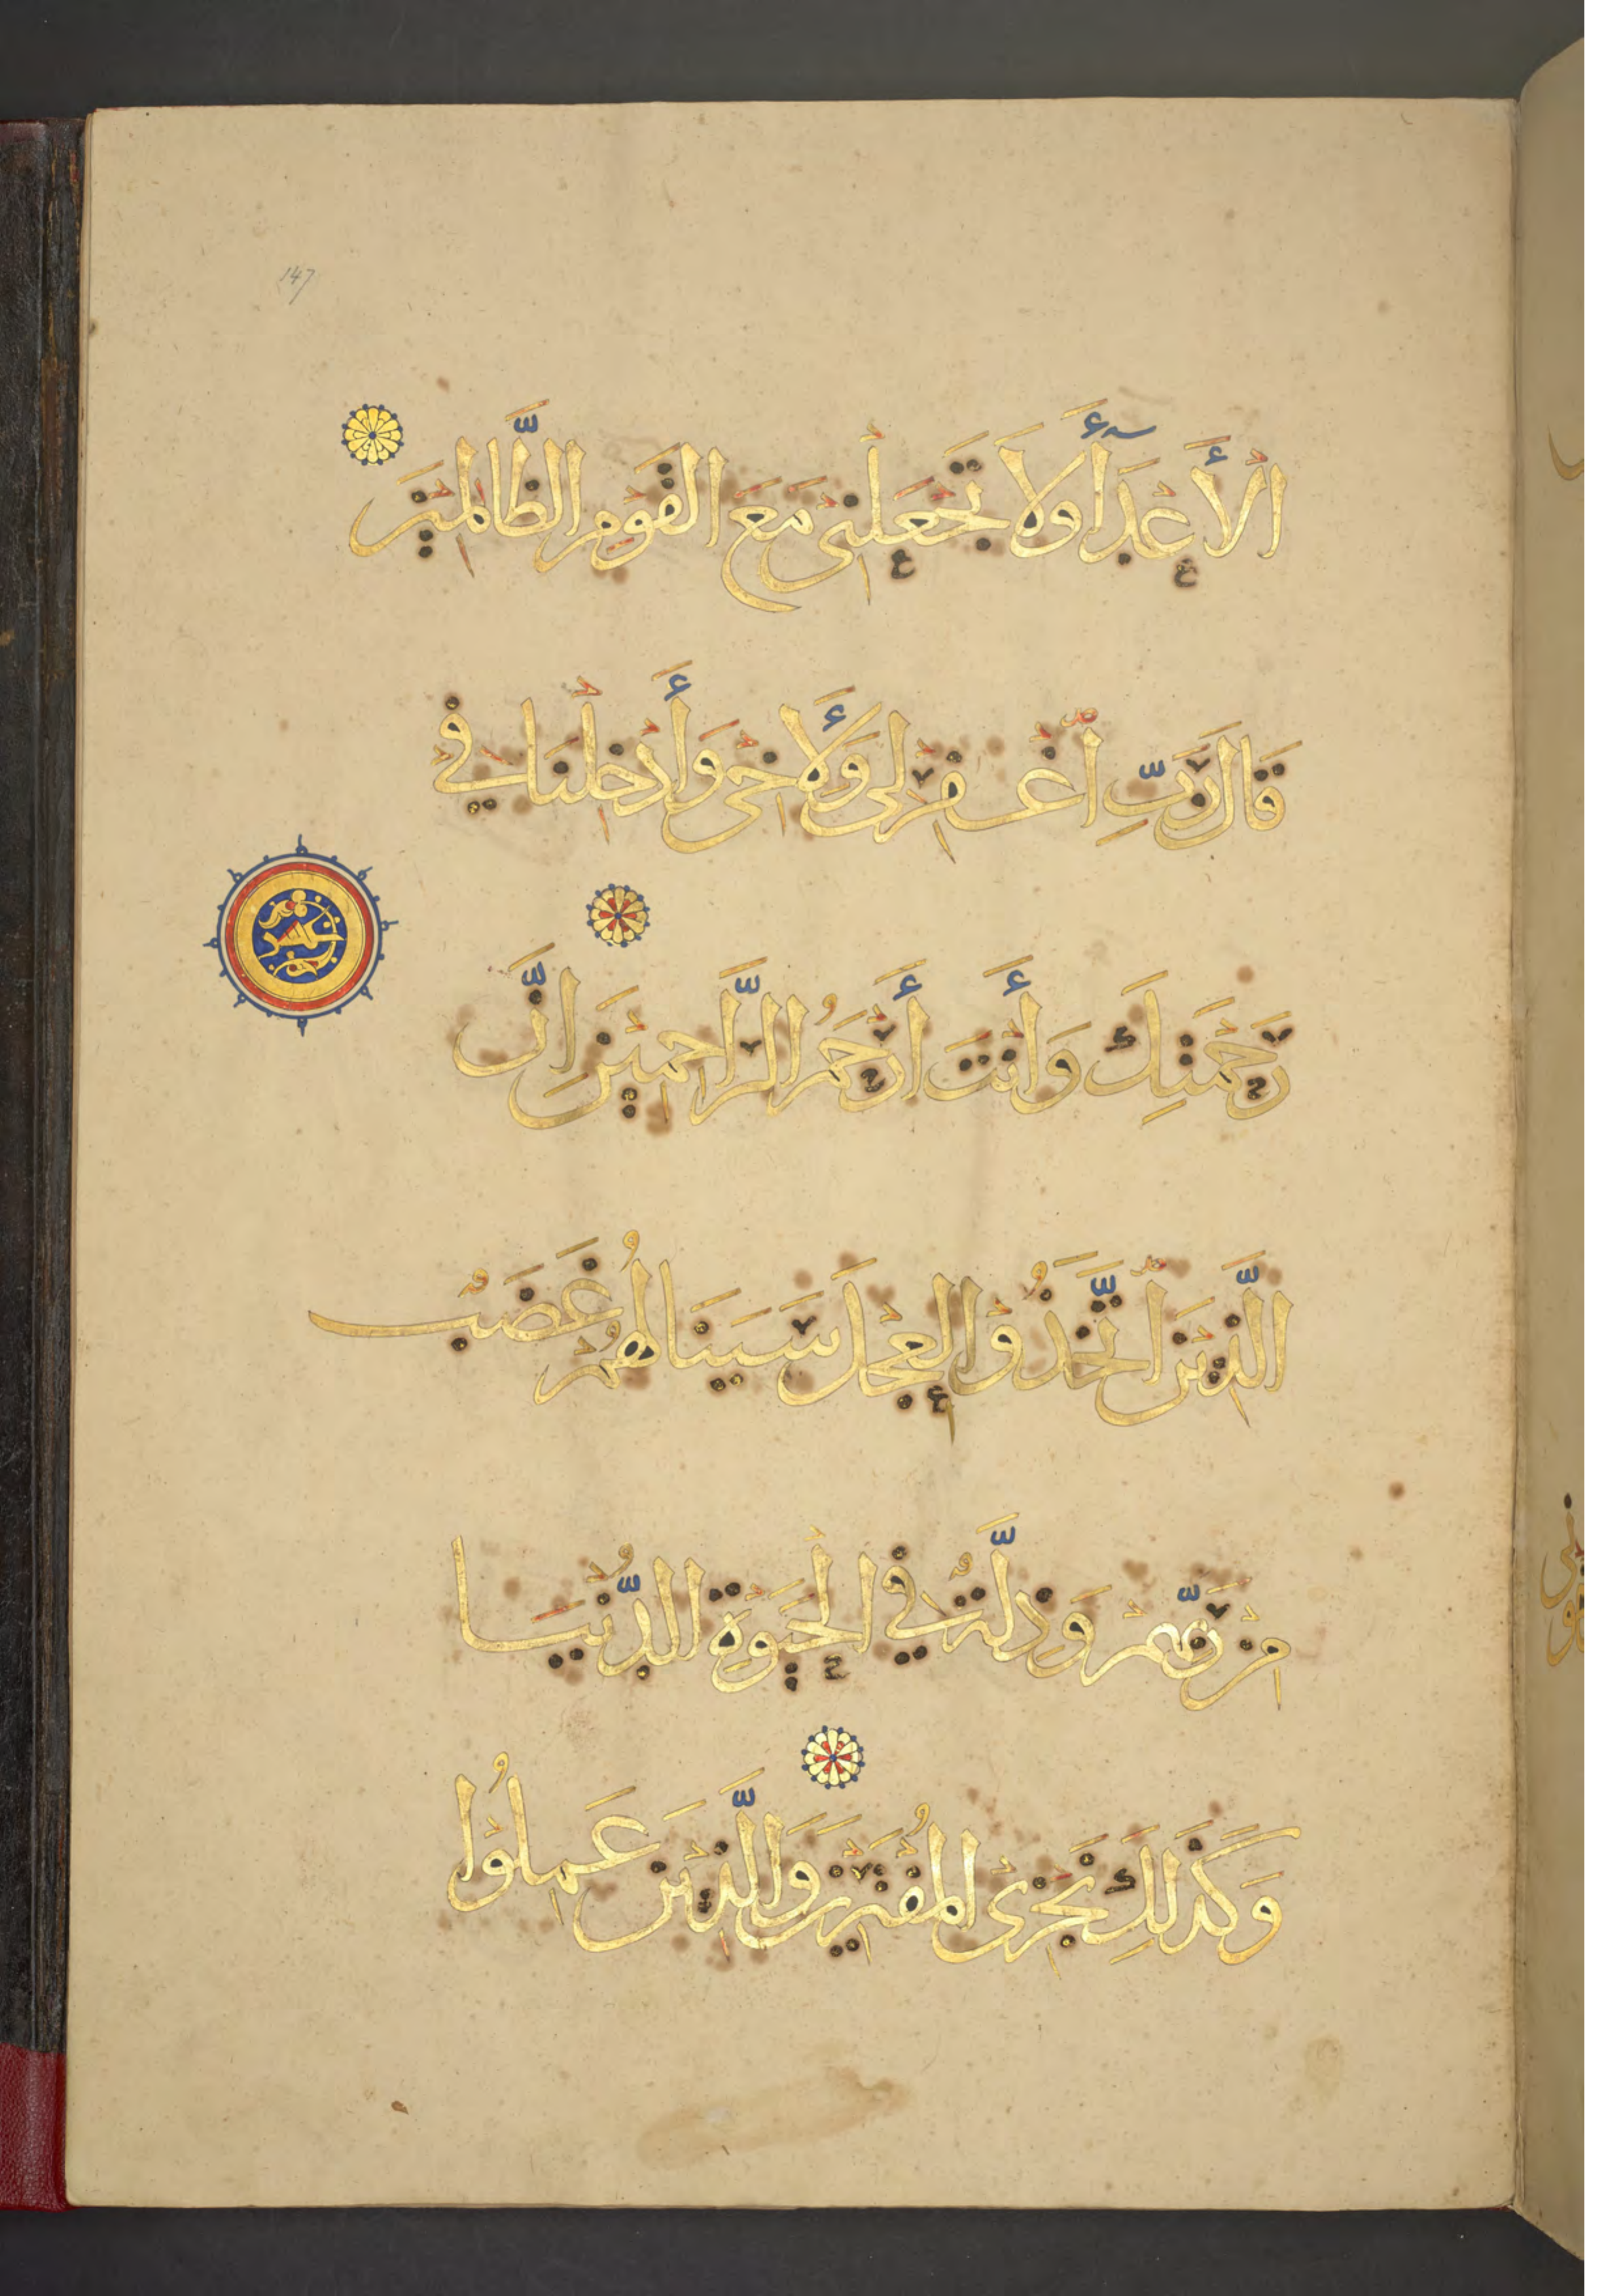 147
الْأَعْدَآءَ وَلَا تَجْعَلْنِى مَعَ الْقَوْمِ الظَّالِمِيْنَ
قَالَ رَبِّ اغْفِرْلِى وَلِأَخِىْ وَأَدْخِلْنَا فِىْ
رَحْمَتِكَ وَأَنْتَ أَرْحَمُ الرَّاحِمِيْنَ اِنَّ
الَّذِيْنَ اتَّخَذُوْا الْعِجْلَ سَيَنَالُهُمْ غَضَبٌ
مِنْ رَبِّهِمْ وَذِلَّةٌ فِى الْحَيَوةِ الدُّنْيَا
وَكَذَلِكَ نَجْزِى الْمُفْتَرِيْنَ وَالَّذِيْنَ عَمِلُوْا